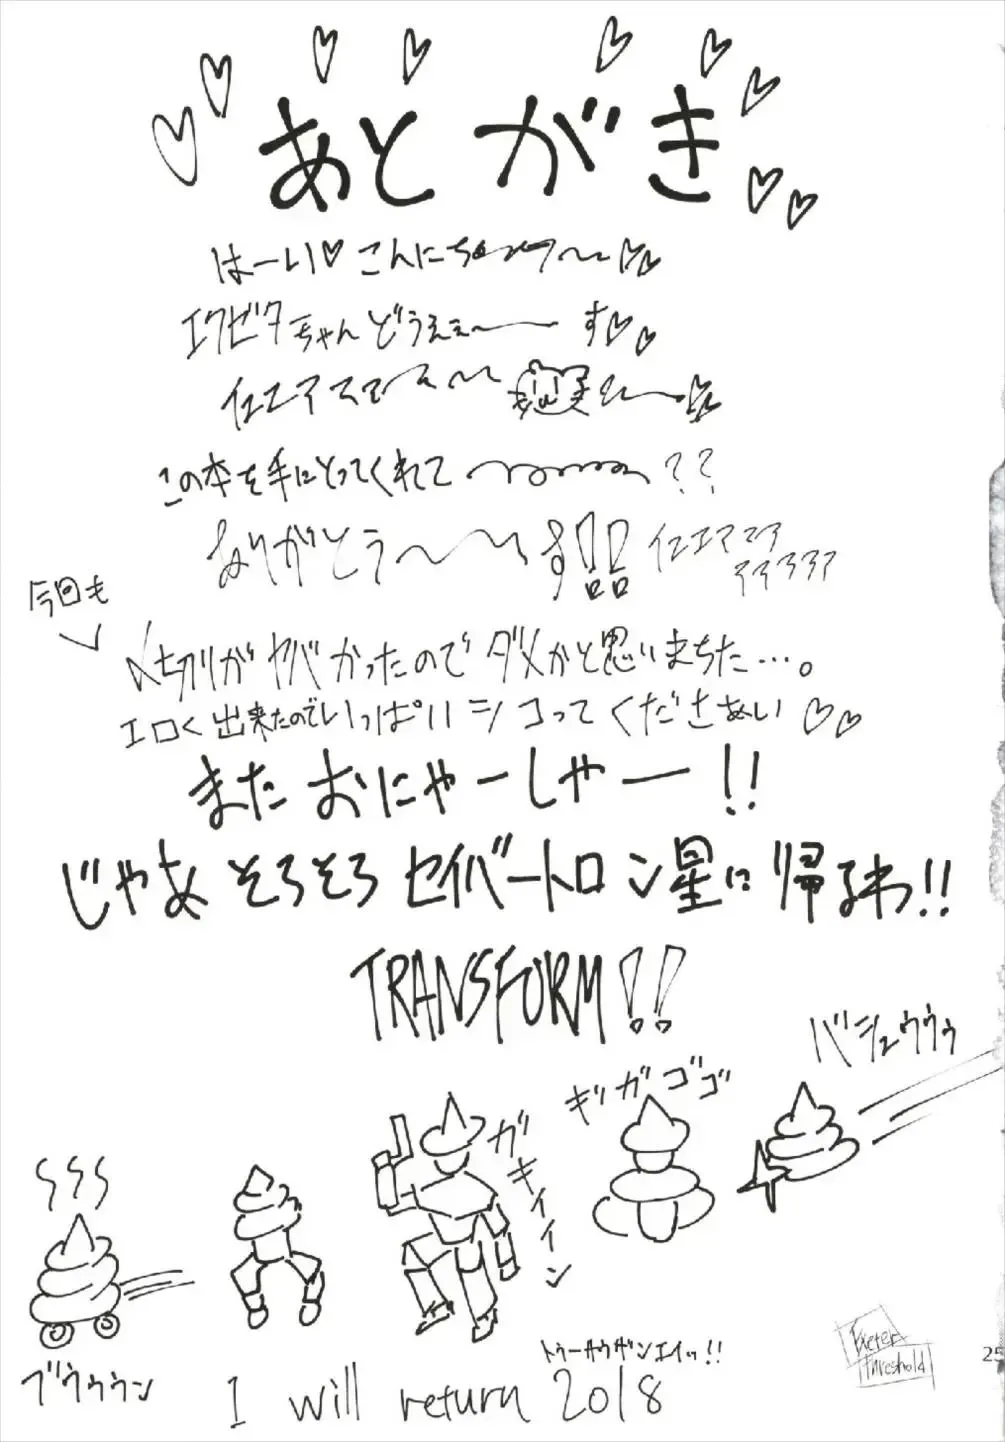 あとがき
はーい♡こんにちゃァ〜♡♡
エクゼタちゃんどうえぇーーす♡♡
イエエア
この本を手にとってくれて〜??
ありがとう〜!!
イエエアア
アアアアア
今回も
〆切りがヤバかったのでダメかと思いまちた…。
エロく出来たのでいっぱいシコってくださぁい♡♡
またおにゃーしゃー!!
じゃあそろそろセイバートロン星に帰るわ!!
TRANSFORM!!
バシュゥゥゥ
ギガゴゴ
ガキィィィン
ブゥゥゥン
トゥーサウザンエイッ!!
I will return 2018
Exeter
threshold
25